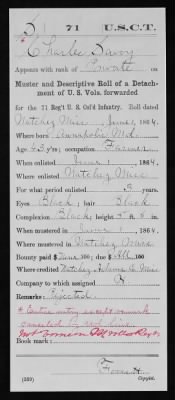 71 U.S.C.T.
Charles Savoy
Appears with rank of Private on
Muster and Descriptive Roll of a Detach-
ment of U. S. Vols. forwarded
for the 71 Reg't U. S. Col'd Infantry. Roll dated
Natchez Miss June 1, 1864.
Where born Annapolis Md.
Age 43 y'rs; occupation Farmer
When enlisted June 1, 1864.
Where enlisted Natchez Miss
For what period enlisted 3 years.
Eyes Black; hair Black
Complexion Black; height 5 ft. 8 in.
When mustered in June 1, 1864.
Where mustered in Natchez Miss
Bounty paid $ 100; due $ 100
Where credited Natchez, Adams Co. Miss
Company to which assigned
Remarks: Rejected.
* Entire entry except remark
canceled by red line.
Book mark:
(339) Copyist.